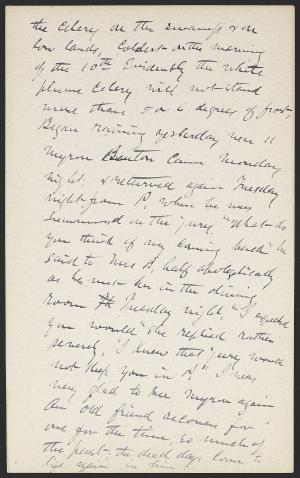 the celery on the swamps & on
low lands, Coldest on the morning
of the 10th Evidently the white
plume celery will not stand
more than 5 or 6 degrees of frost,
Began raining yesterday near 11
Myron Benton Came Monday
night, & returned again Tuesday
night from P, when he was
summoned on the jury, "What do
you think of my coming back" he
said to Mrs B, half apologetically
as he met her in the dining
room Tuesday night, "I expected
you would" she replied rather
severely, "I knew that jury would
not keep you in P," I was
very glad to see Myron again
An old friend recovers for
one for the time, so much of
the past - the dead days come to
life again in him